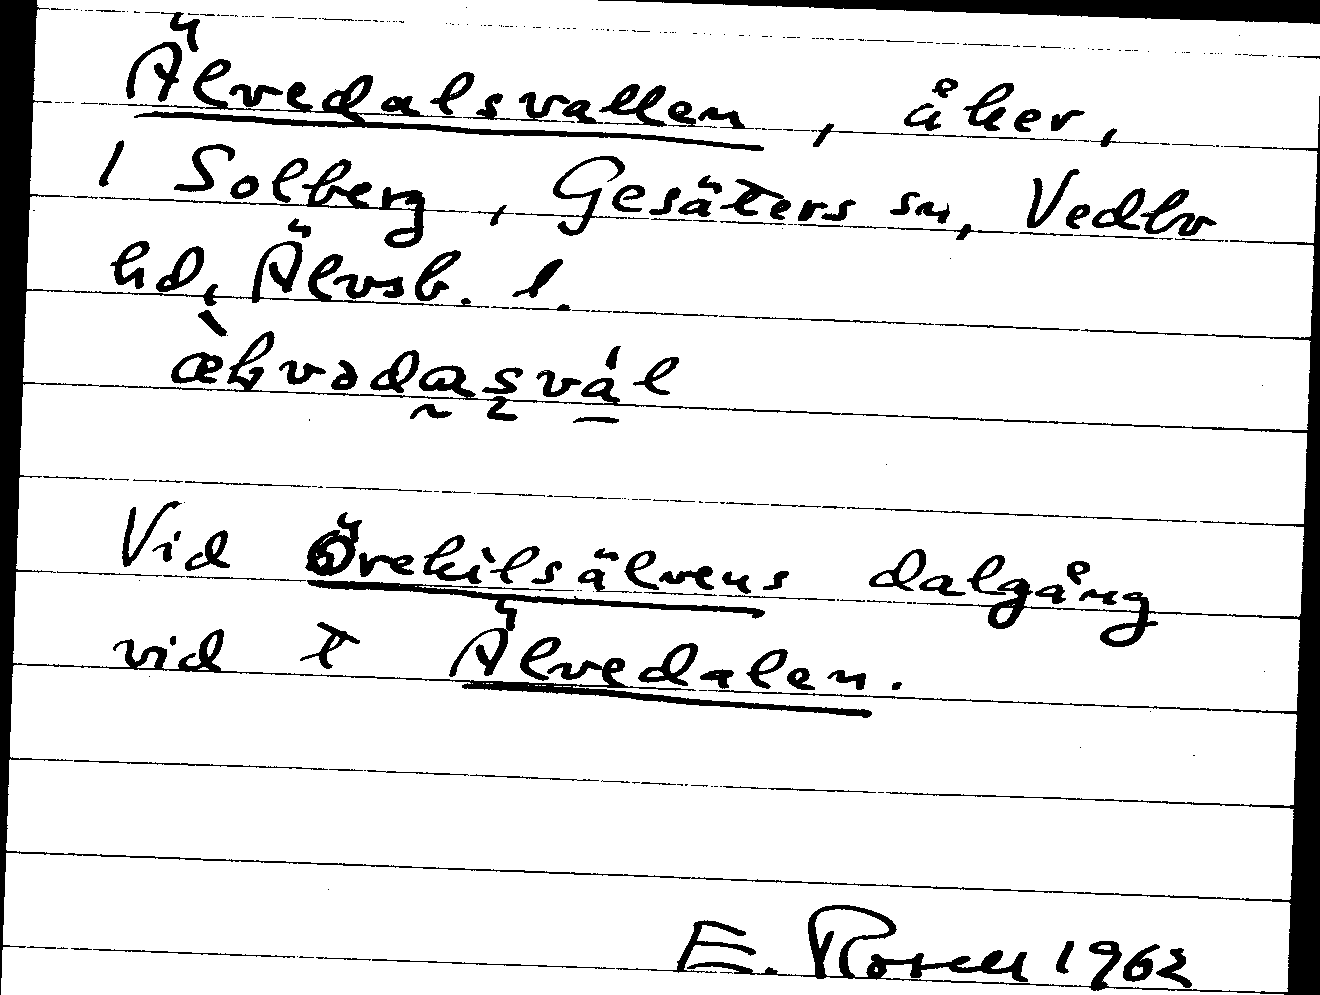 Älvedalsvallen, åker,
i Solberg, Gesäters sn, Vedbo
hd, Älvsb. l.
Vid Örekilsälvens dalgång
vid t Älvedalen.
E. Rosell 1962